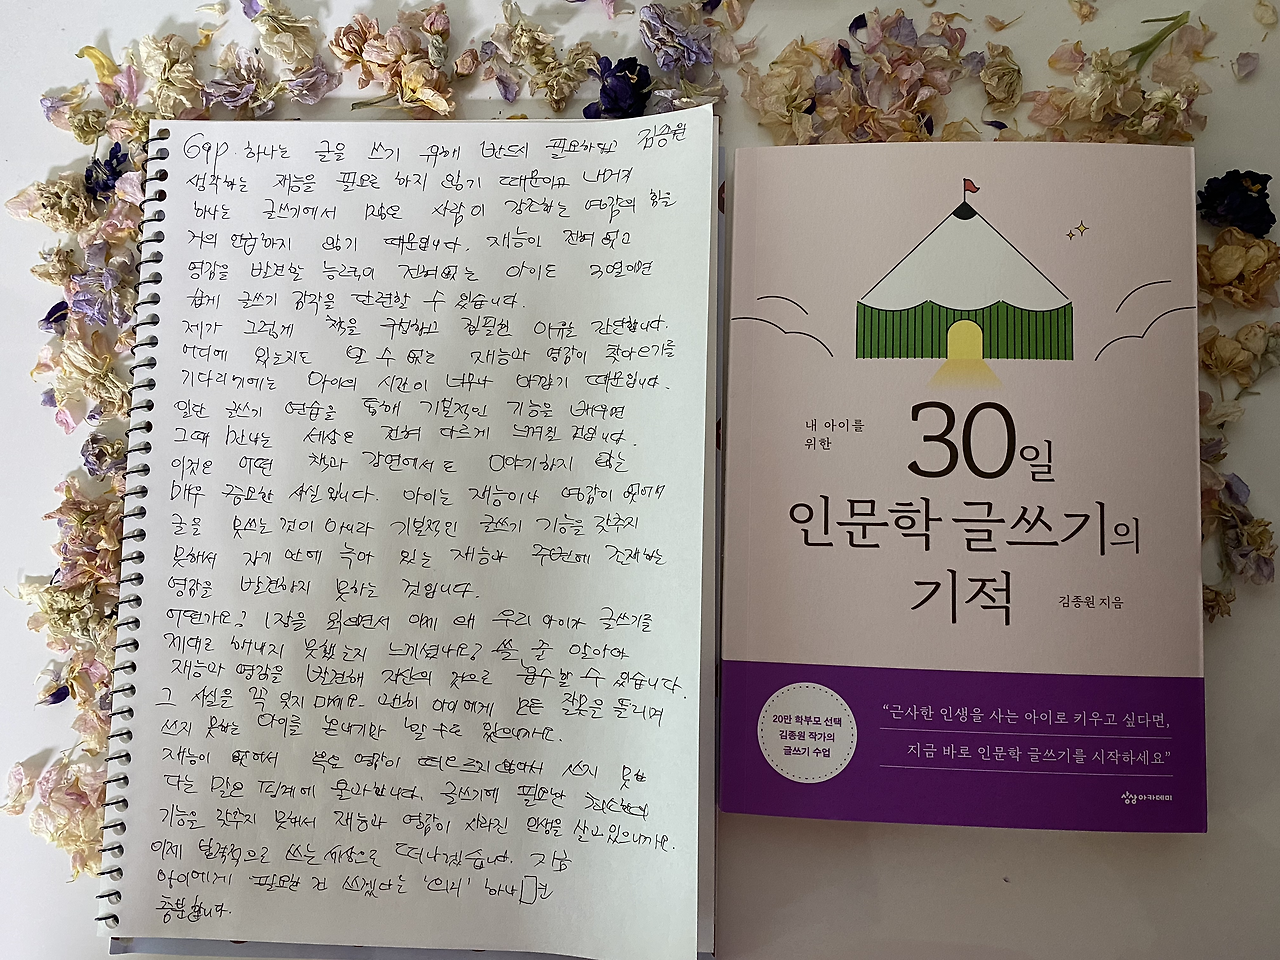 69p. 하나는 글을 쓰기 위해 반드시 필요하다고 김종원
생각하는 재능을 필요로 하지 않기 때문이고 나머지
하나는 글쓰기에서 많은 사람이 강조하는 영감의 힘을
거의 언급하지 않기 때문입니다. 재능이 전혀 없고
영감을 발견할 능력이 전혀 없는 아이도 30일이면
쉽게 글쓰기 감각을 단련할 수 있습니다.
제가 그렇게 책을 구성하고 집필한 이유는 간단합니다.
어디에 있는지도 알 수 없는 재능과 영감이 찾아오기를
기다리기에는 아이의 시간이 너무나 아깝기 때문입니다.
일단 글쓰기 연습을 통해 기본적인 기능을 배우면
그때 만나는 세상은 전혀 다르게 느껴질 겁입니다.
이것은 어떤 책과 강연에서도 이야기하지 않는
매우 중요한 사실입니다. 아이는 재능이나 영감이 없어서
글을 못쓰는 것이 아니라 기본적인 글쓰기 기능을 갖추지
못해서 자기 안에 녹아 있는 재능과 주변에 존재하는
영감을 발견하지 못하는 것입니다.
어떤가요? 1장을 읽으면서 이제 왜 우리 아이가 글쓰기를
제대로 해내지 못했는지 느끼셨나요? 쓸 줄 알아야
재능과 영감을 발견해 자신의 것으로 흡수할 수 있습니다.
그 사실을 꼭 잊지 마세요. 괜히 아이에게 모든 잘못을 돌리며
쓰지 못하는 아이를 혼내기만 할 수도 있으니까요.
재능이 없어서 혹은 영감이 떠오르지 않아서 쓰지 못한
다는 말은 핑계에 불과합니다. 글쓰기에 필요한 최소한의
기능을 갖추지 못해서 재능과 영감이 사라진 인생을 살고 있으니까요.
이제 본격적으로 쓰는 세상으로 떠나겠습니다. 지금
아이에게 필요한 건 쓰겠다는 '의지' 하나면
충분합니다.
내 아이를
위한
30일
인문학 글쓰기의
기적
김종원 지음
20만 학부모 선택
김종원 작가의
글쓰기 수업
“근사한 인생을 사는 아이로 키우고 싶다면,
지금 바로 인문학 글쓰기를 시작하세요”
상상아카데미